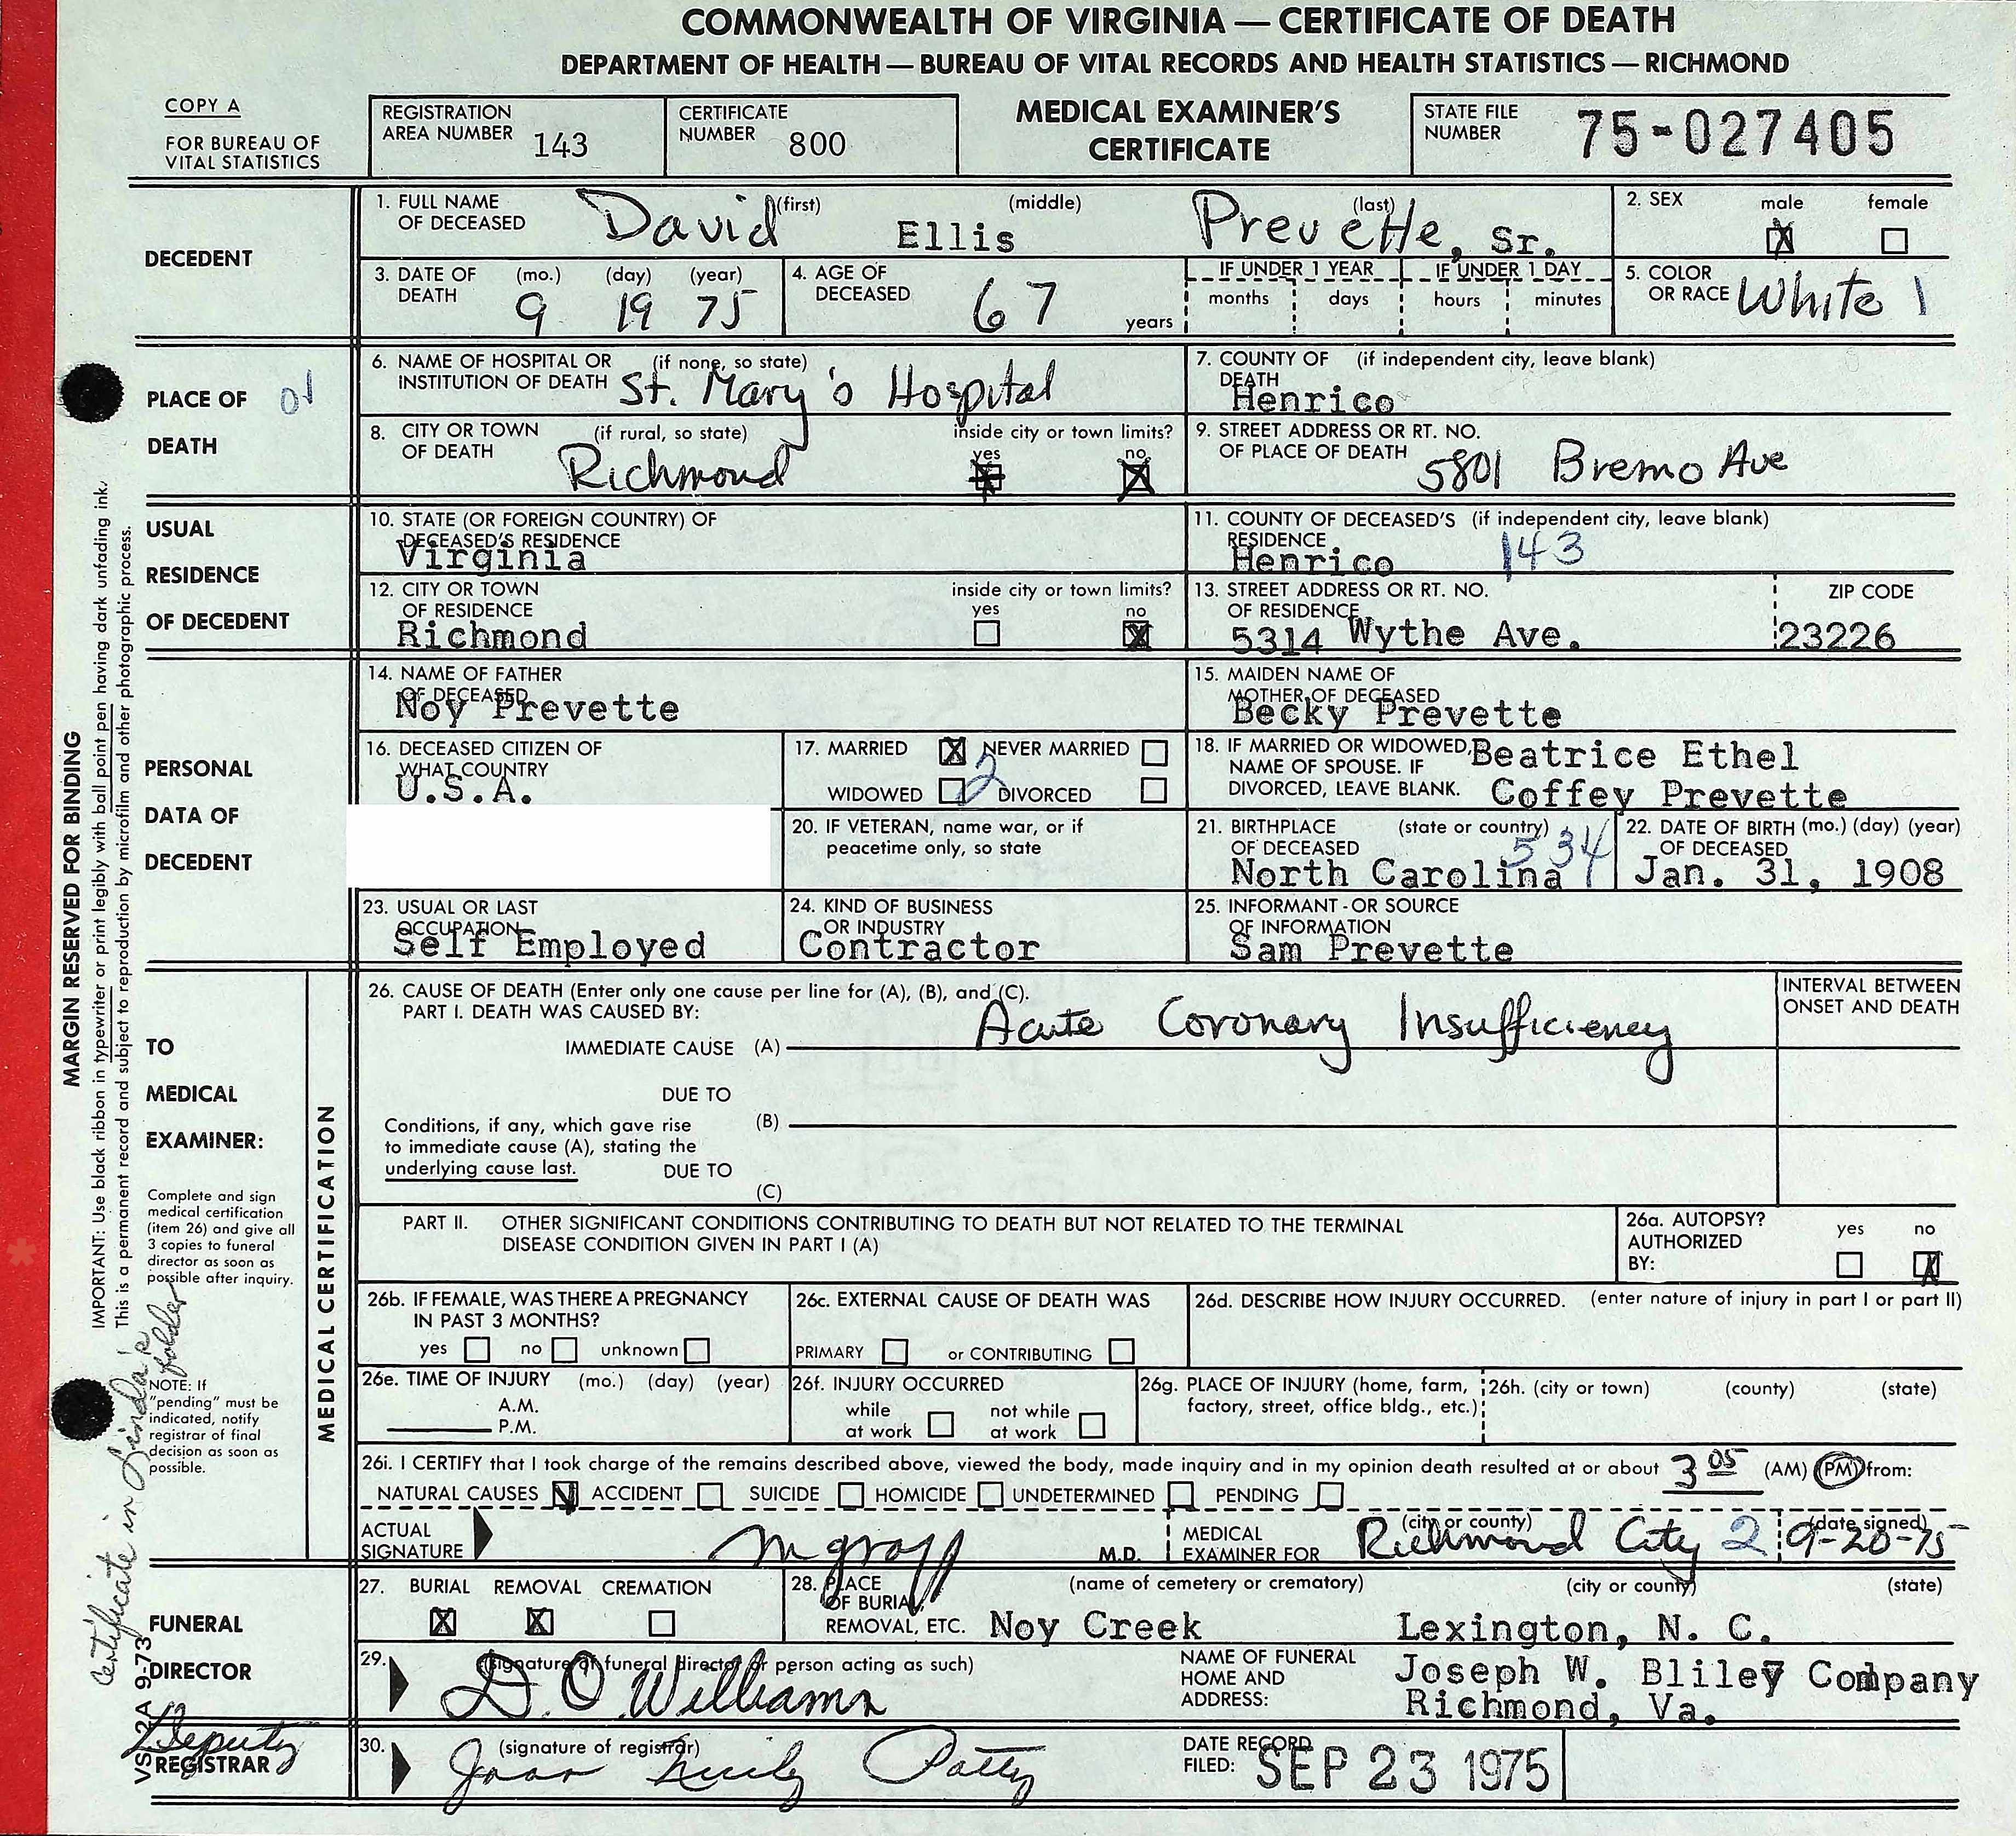 COMMONWEALTH OF VIRGINIA — CERTIFICATE OF DEATH
DEPARTMENT OF HEALTH — BUREAU OF VITAL RECORDS AND HEALTH STATISTICS — RICHMOND
COPY A
FOR BUREAU OF
VITAL STATISTICS
REGISTRATION
AREA NUMBER 143
CERTIFICATE
NUMBER 800
MEDICAL EXAMINER'S
CERTIFICATE
STATE FILE
NUMBER 75-027405
DECEDENT
1. FULL NAME (first) (middle) (last)
OF DECEASED David Ellis Prevette, Sr.
2. SEX male female
X
3. DATE OF (mo.) (day) (year)
DEATH 9 19 75
4. AGE OF
DECEASED 67 years
IF UNDER 1 YEAR IF UNDER 1 DAY
months days hours minutes
5. COLOR
OR RACE White 1
PLACE OF 01
DEATH
6. NAME OF HOSPITAL OR (if none, so state)
INSTITUTION OF DEATH St. Mary's Hospital
7. COUNTY OF (if independent city, leave blank)
DEATH
Henrico
8. CITY OR TOWN (if rural, so state) inside city or town limits?
OF DEATH Richmond yes no
X
9. STREET ADDRESS OR RT. NO.
OF PLACE OF DEATH 5801 Bremo Ave
USUAL
RESIDENCE
OF DECEDENT
10. STATE (OR FOREIGN COUNTRY) OF
DECEASED'S RESIDENCE
Virginia
11. COUNTY OF DECEASED'S (if independent city, leave blank)
RESIDENCE
Henrico 143
12. CITY OR TOWN inside city or town limits?
OF RESIDENCE yes no
Richmond X
13. STREET ADDRESS OR RT. NO. ZIP CODE
OF RESIDENCE
5314 Wythe Ave. 23226
PERSONAL
DATA OF
DECEDENT
14. NAME OF FATHER
OF DECEASED
Noy Prevette
15. MAIDEN NAME OF
MOTHER OF DECEASED
Becky Prevette
16. DECEASED CITIZEN OF
WHAT COUNTRY
U.S.A.
17. MARRIED X NEVER MARRIED
2
WIDOWED DIVORCED
18. IF MARRIED OR WIDOWED, Beatrice Ethel
NAME OF SPOUSE. IF
DIVORCED, LEAVE BLANK. Coffey Prevette
20. IF VETERAN, name war, or if
peacetime only, so state
21. BIRTHPLACE (state or country)
OF DECEASED 534
North Carolina
22. DATE OF BIRTH (mo.) (day) (year)
OF DECEASED
Jan. 31, 1908
23. USUAL OR LAST
OCCUPATION
Self Employed
24. KIND OF BUSINESS
OR INDUSTRY
Contractor
25. INFORMANT - OR SOURCE
OF INFORMATION
Sam Prevette
TO
MEDICAL
EXAMINER:
Complete and sign
medical certification
(item 26) and give all
3 copies to funeral
director as soon as
possible after inquiry.
NOTE: If
"pending" must be
indicated, notify
registrar of final
decision as soon as
possible.
MEDICAL CERTIFICATION
26. CAUSE OF DEATH (Enter only one cause per line for (A), (B), and (C).
PART I. DEATH WAS CAUSED BY:
IMMEDIATE CAUSE (A) Acute Coronary Insufficiency
INTERVAL BETWEEN
ONSET AND DEATH
DUE TO
Conditions, if any, which gave rise (B)
to immediate cause (A), stating the
underlying cause last. DUE TO
(C)
PART II. OTHER SIGNIFICANT CONDITIONS CONTRIBUTING TO DEATH BUT NOT RELATED TO THE TERMINAL
DISEASE CONDITION GIVEN IN PART I (A)
26a. AUTOPSY? yes no
AUTHORIZED
BY: X
26b. IF FEMALE, WAS THERE A PREGNANCY
IN PAST 3 MONTHS?
yes no unknown
26c. EXTERNAL CAUSE OF DEATH WAS
PRIMARY or CONTRIBUTING
26d. DESCRIBE HOW INJURY OCCURRED. (enter nature of injury in part I or part II)
26e. TIME OF INJURY (mo.) (day) (year)
A.M.
P.M.
26f. INJURY OCCURRED
while not while
at work at work
26g. PLACE OF INJURY (home, farm,
factory, street, office bldg., etc.)
26h. (city or town) (county) (state)
26i. I CERTIFY that I took charge of the remains described above, viewed the body, made inquiry and in my opinion death resulted at or about 3 05 (AM) (PM) from:
NATURAL CAUSES ACCIDENT SUICIDE HOMICIDE UNDETERMINED PENDING
ACTUAL
SIGNATURE M.D.
MEDICAL (city or county) (date signed)
EXAMINER FOR Richmond City 2 9-20-75
FUNERAL
DIRECTOR
27. BURIAL REMOVAL CREMATION
X X
28. PLACE (name of cemetery or crematory) (city or county) (state)
OF BURIAL,
REMOVAL, ETC. Noy Creek Lexington, N. C.
29. (signature of funeral director or person acting as such)
D. O Williams
NAME OF FUNERAL
HOME AND
ADDRESS:
Joseph W. Bliley Company
Richmond, Va.
Deputy
REGISTRAR
30. (signature of registrar)
Joan Patty
DATE RECORD
FILED: SEP 23 1975
MARGIN RESERVED FOR BINDING
IMPORTANT: Use black ribbon in typewriter or print legibly with ball point pen having dark unfading ink.
This is a permanent record and subject to reproduction by microfilm and other photographic process.
Certificate in Linda's folder
VS 2A 9-73